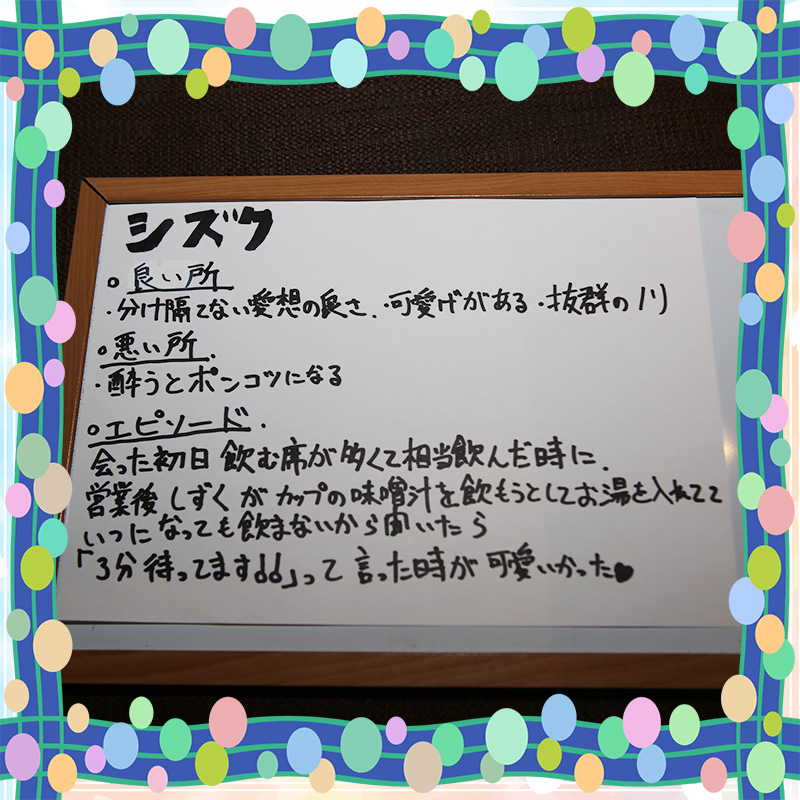 シズク
○良い所
・分け隔てない愛想の良さ、・可愛げがある・抜群のノリ
○悪い所.
・酔うとポンコツになる
○エピソード.
会った初日 飲む席が多くて相当飲んだ時に、
営業後 しずくが カップの味噌汁を飲もうとしてお湯を入れてて
いつになっても飲まないから聞いたら
「3分待ってます!!」って 言った時が 可愛いかった♥